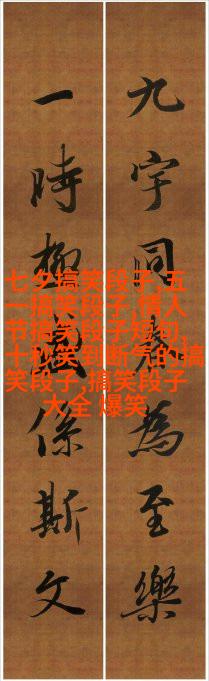 九宇同為至樂
一時係斯文
七夕搞笑段子,五
一搞笑段子,情人
节搞笑段子短句,
十秒笑到断气的搞
笑段子,搞笑段子
大全 爆笑